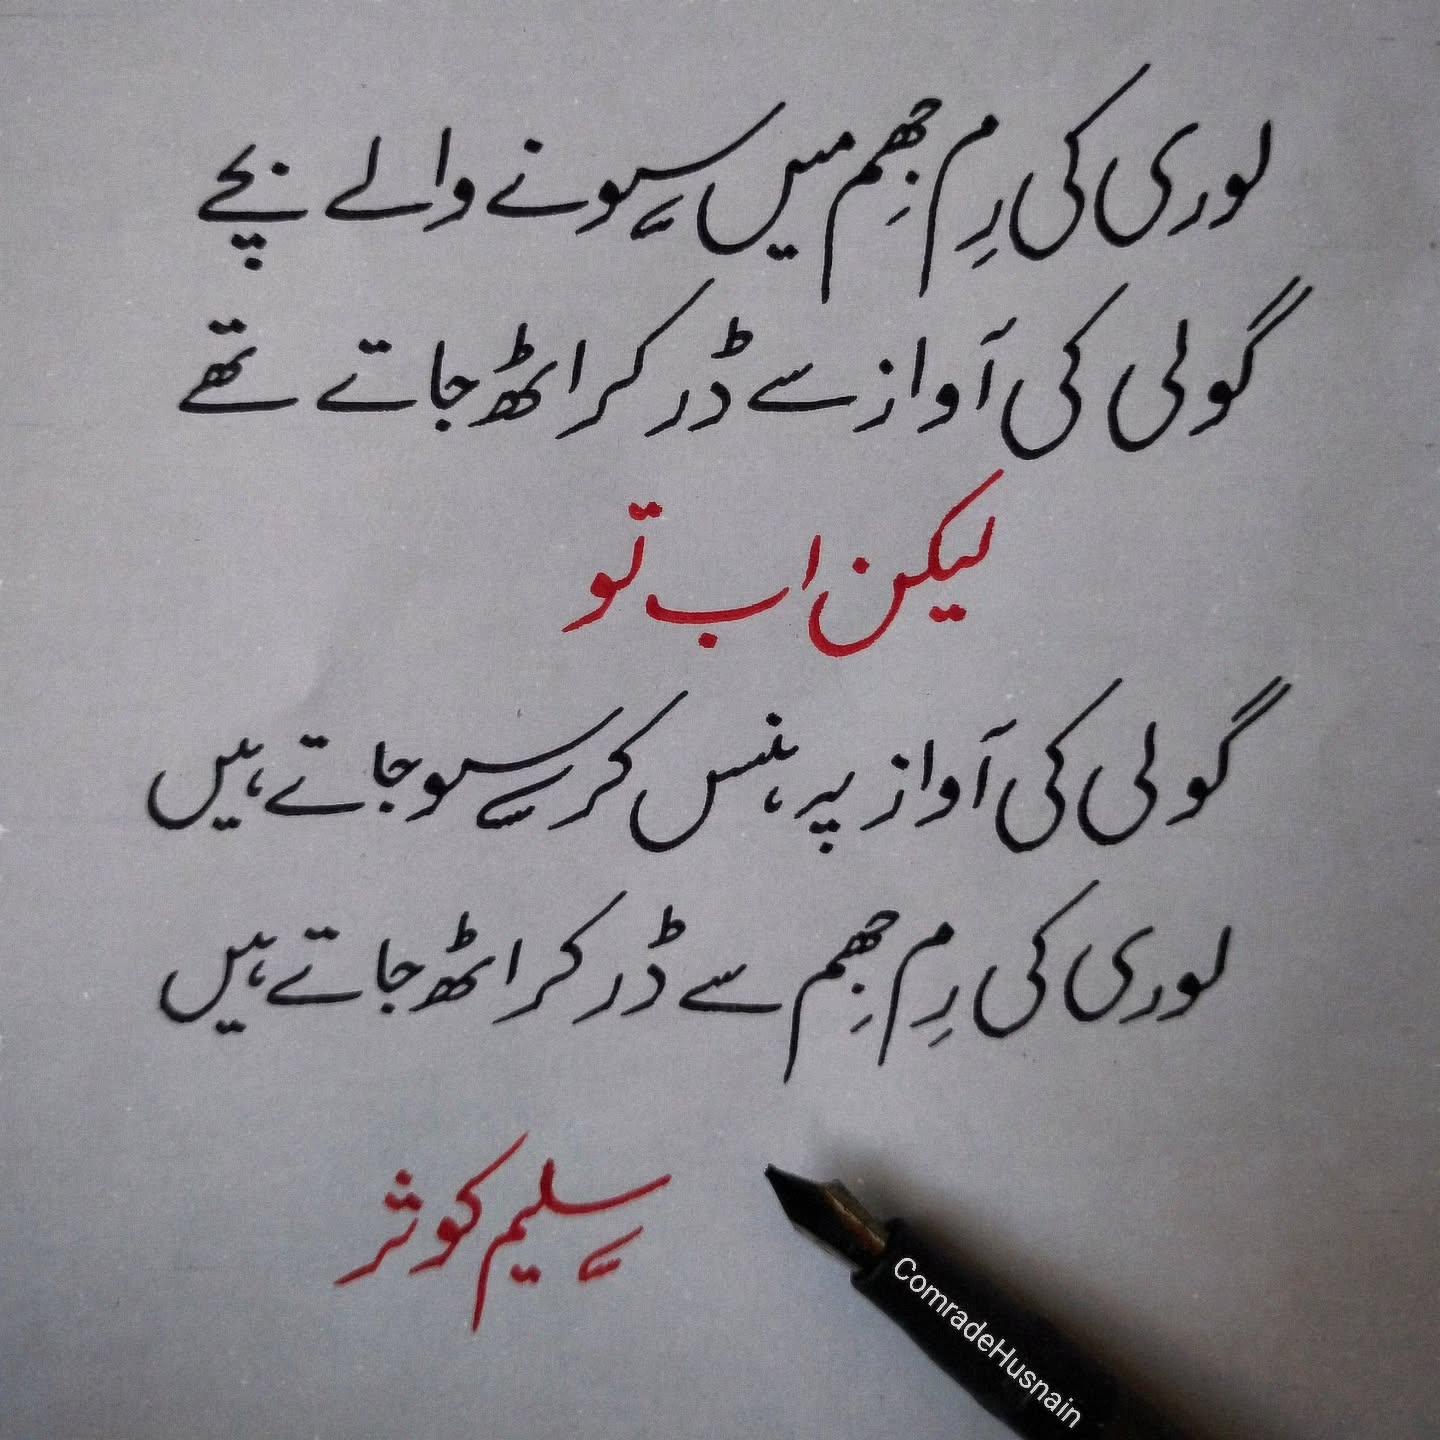 لوری کی رِم جھِم میں سونے والے بچے
گولی کی آواز سے ڈر کر اٹھ جاتے تھے
لیکن اب تو
گولی کی آواز پر ہنس کر سو جاتے ہیں
لوری کی رِم جھِم سے ڈر کر اٹھ جاتے ہیں
سلیم کوثر
ComradeHusnain